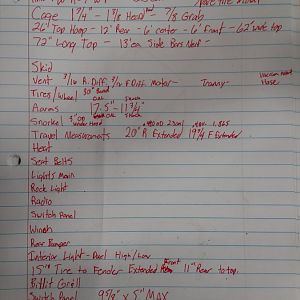 Cage 1 3/4" - 1 5/8 Head - 7/8 Grab
26" Top Hoop - 12" Rear - 6' center - 6' front - 62" wide top
72" Long Top - 13" on Side Bars New
Skid
Vent 3/16 R. Diff. 3/16 F Diff. Motor - Tranny - Vacuum Hose
Tires/Wheel 30"
Aarms 7.5" - 11 3/4"
Snorkel 3" OD under Hood
Travel Measurements 20" R Extended 19 3/4 F Extended
Heat
Seat Belts
Lights Main
Rock Light
Radio
Switch Panel
Winch
Rear Bumper
Interior Light - Duel High/low
15" Tire to Fender Extended Front 11" Rear to top.
Billit Grill
Switch Panel 9 5/8" x 5" MAX